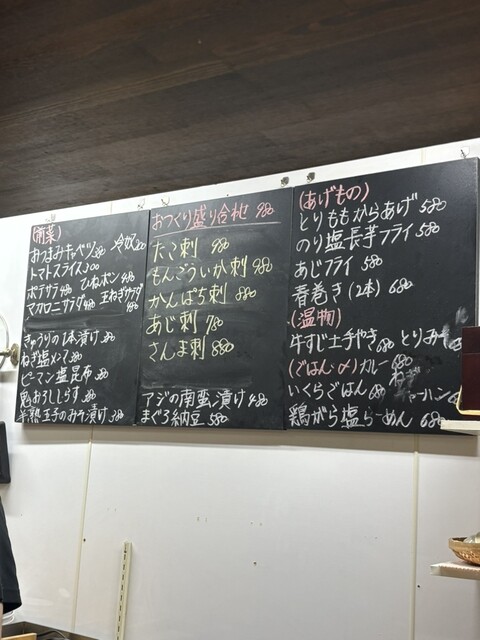 (前菜)
おつまみキャベツ 280 冷奴 200
トマトスライス 300
ポテサラ 480 ひねポン 480
マカロニサラダ 480 玉ねぎサラダ 480
きゅうりの1本漬け 380
ねぎ塩メンマ 380
ピーマン塩昆布 380
おろししらす 380
半熟玉子のみそ漬け 380
おつくり盛り合わせ 980
たこ刺 980
もんごういか刺 980
かんぱち刺 880
あじ刺 780
さんま刺 880
アジの南蛮漬け 480
まぐろ納豆 580
(あげもの)
とりももからあげ 580
のり塩長芋フライ 580
あじフライ 580
春巻き(2本) 680
(温物)
牛すじ土手やき 680 とりみそ
(ごはん・〆) カレー 680
いくらごはん 680 ねぎチャーハン
鶏がら塩らーめん 680